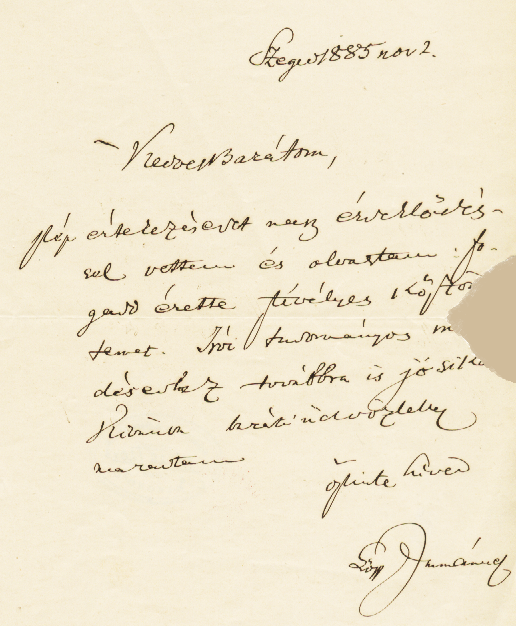 Szeged 1885 nov 2.
Kedves Barátom,
Szép értekezésedet nagy érdeklődés-
sel vettem és olvastam. Fo-
gadd érette szívélyes köszö
temet. Írói tudományos m
désedhez továbbra is jó sike
Kívánva baráti üdvözlettel
maradtam
őszinte híved
Löw Immánuel